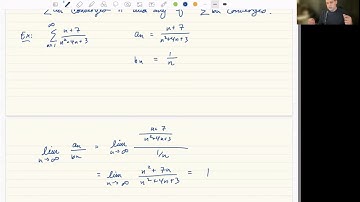 Σ an converges if and only if Σ bn converges.
Ex: ∞ Σ n=1 n+7 / n²+4n+3 an = n+7 / n²+4n+3
bn = 1 / n
lim n→∞ an / bn = lim n→∞ n+7 / n²+4n+3 / 1/n
= lim n→∞ n²+7n / n²+4n+3 = 1